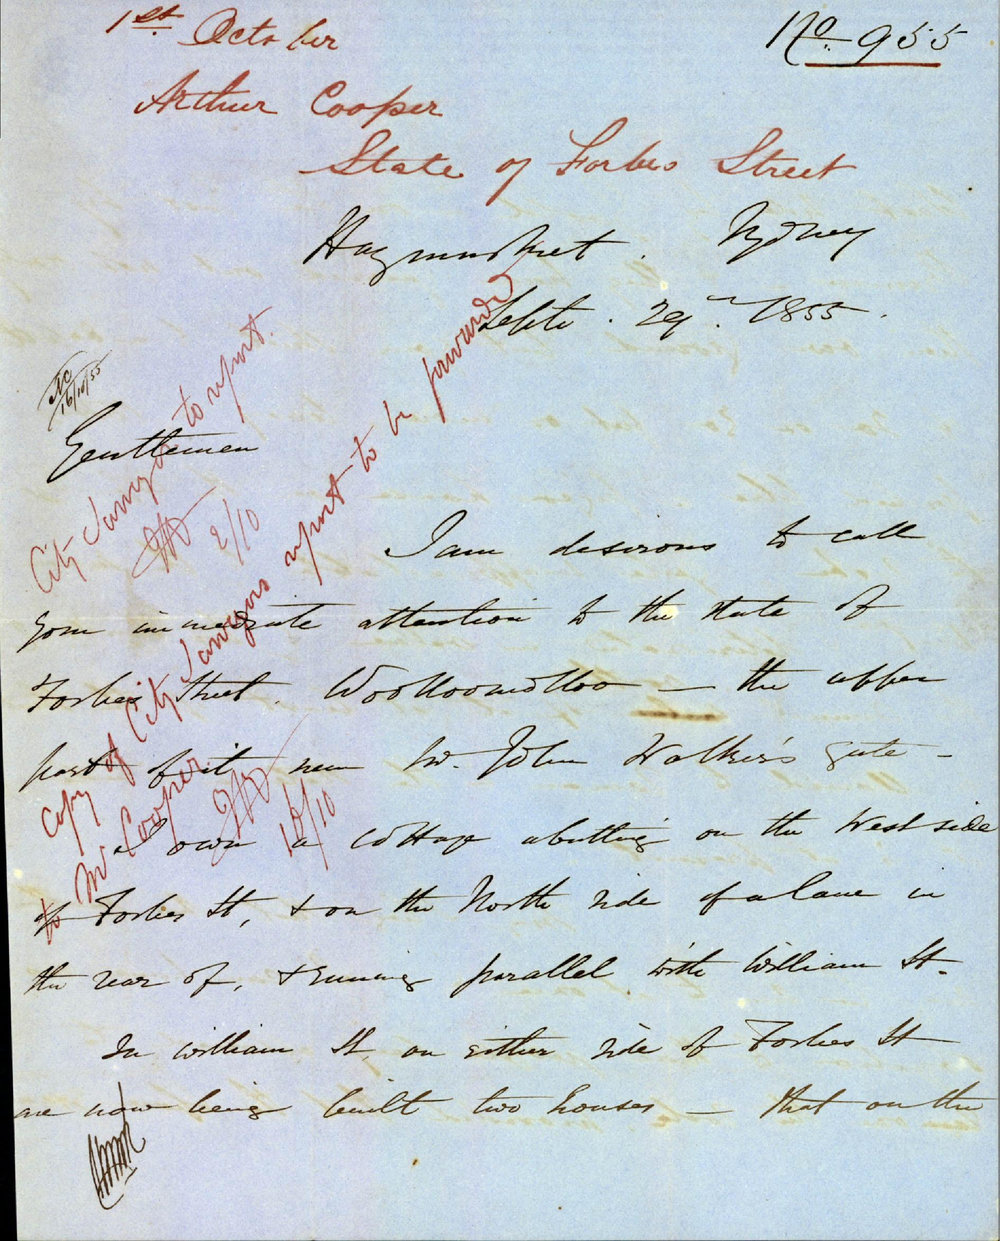 1st October
No. 955
Arthur Cooper
State of Forbes Street
Haymarket. Sydney
Septr. 29. 1855.
16/10/55
Gentlemen
City Surveyor to report.
2/10
Copy of City Surveyors report to be forwarded
to Mr Cooper
10/10
I am desirous to call
your immediate attention to the state of
Forbes Street. Woolloomooloo — the upper
part of it near Mr. John Walker's gate —
I own a cottage abutting on the West side
of Forbes St, & on the North side of a lane in
the rear of, & running parallel with William St.
In William St on either side of Forbes St
are now being built two houses — that on the